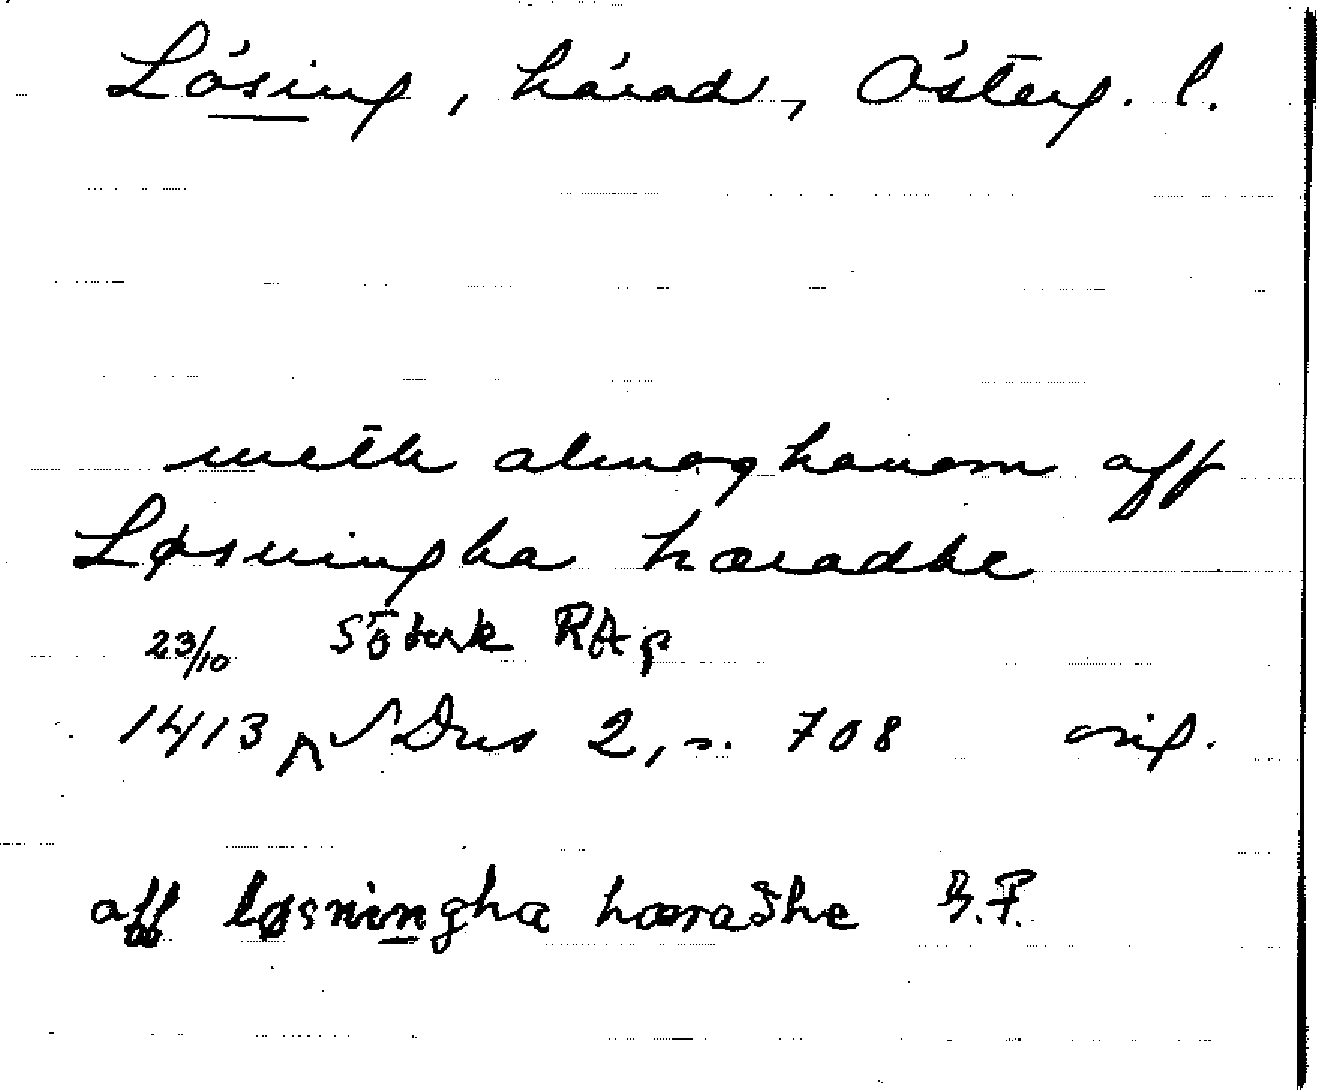 Lösing, härad, Österg. l.
meth almoghanom aff
Løsningha hæradhe
23/10 Söderk RAp
1413 SDns 2, s. 708 orig.
aff løsningha hæradhe B.F.